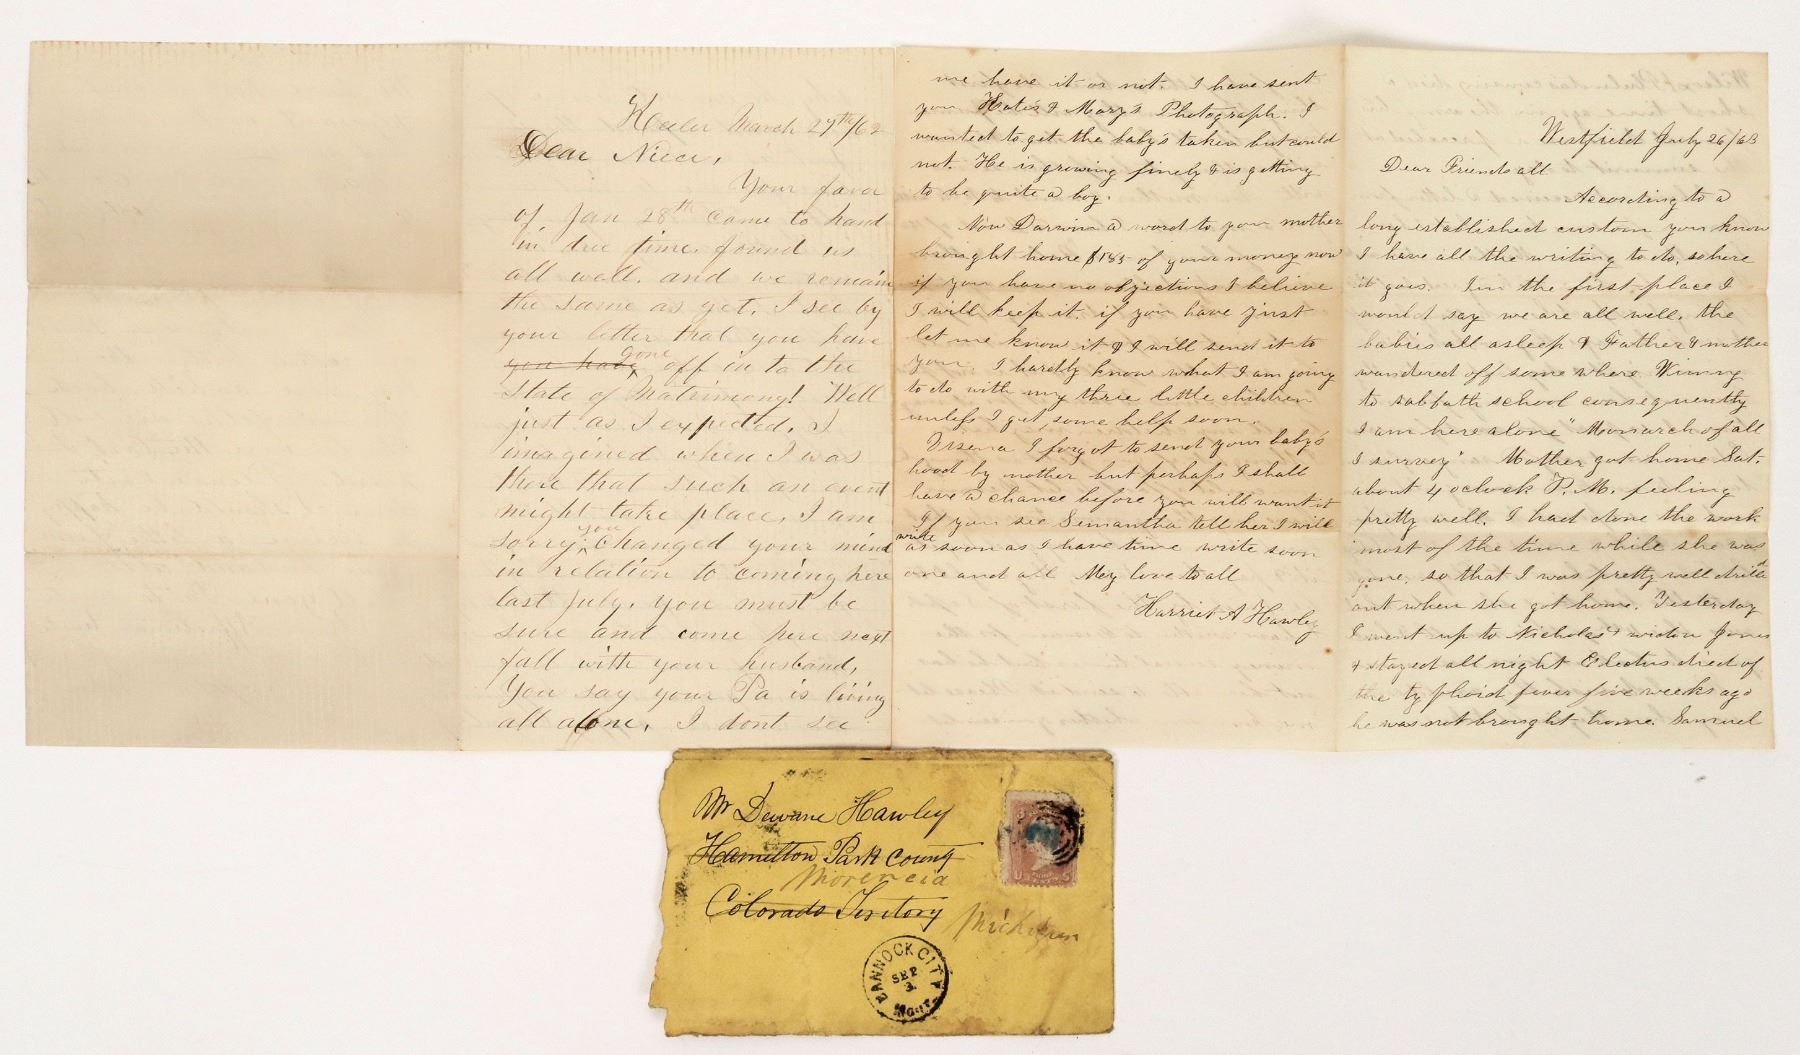 Keeler March 27th/62
Dear Niece,
Your favor
of Jan 28th came to hand
in due time. found us
all well. and we remain
the same as yet. I see by
your letter that you have
you have gone off in to the
State of Matrimony! Well
just as I expected. I
imagined when I was
there that such an event
might take place. I am
sorry you changed your mind
in relation to coming here
last July. you must be
sure and come here next
fall with your husband,
You say your Pa is living
all alone. I dont see
me have it or not. I have sent
you Kate's & Mary's Photograph. I
wanted to get the baby's taken but could
not. He is growing finely & is getting
to be quite a boy.
Now Darwin a word to you mother
brought home $185 of your money now
if you have no objections I believe
I will keep it. if you have just
let me know it & I will send it to
you. I hardly know what I am going
to do with my three little children
unless I get some help soon.
I forgot to send your baby's
hood by mother but perhaps I shall
have a chance before you will want it
If you see Semantha tell her I will
write as soon as I have time write soon
one and all My love to all
Harriet A Hawley
Westfield July 26/63
Dear Friends all
According to a
long established custom you know
I have all the writing to do, so here
it goes. In the first place I
would say we are all well. the
babies all asleep & Father & mother
wandered off some where Winny
to sabbath school consequently
I am here alone "Monarch of all
I survey" Mother got home Sat.
about 4 oclock P.M. feeling
pretty well. I had done the work
most of the time while she was
gone, so that I was pretty well
out when she got home. Yesterday
I went up to Nicholas' & widow Jones
& stayed all night Electus died of
the typhoid fever five weeks ago
he was not brought home. Samuel
Mr Dewane Hawley
Hamilton Park County
Morencia
Colorado Territory
Michigan
U 3 S
BANNOCK CITY
SEP
3
Mont